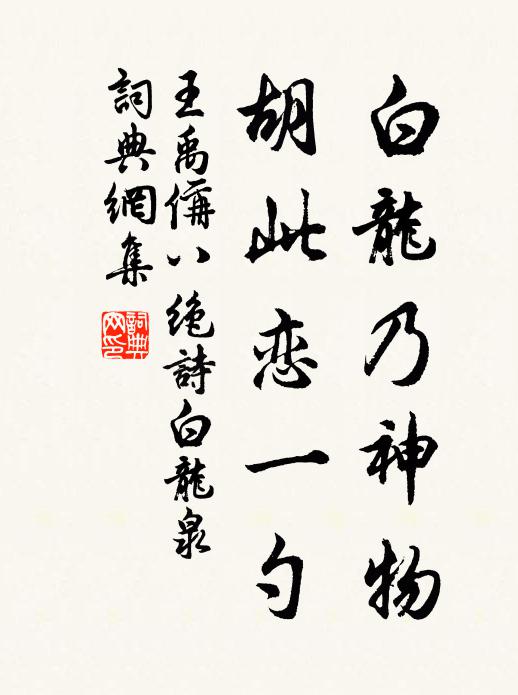 白龍乃神物
胡此恋一勺
王禹偁八绝詩白龍泉
詞典網集
詞典
网印